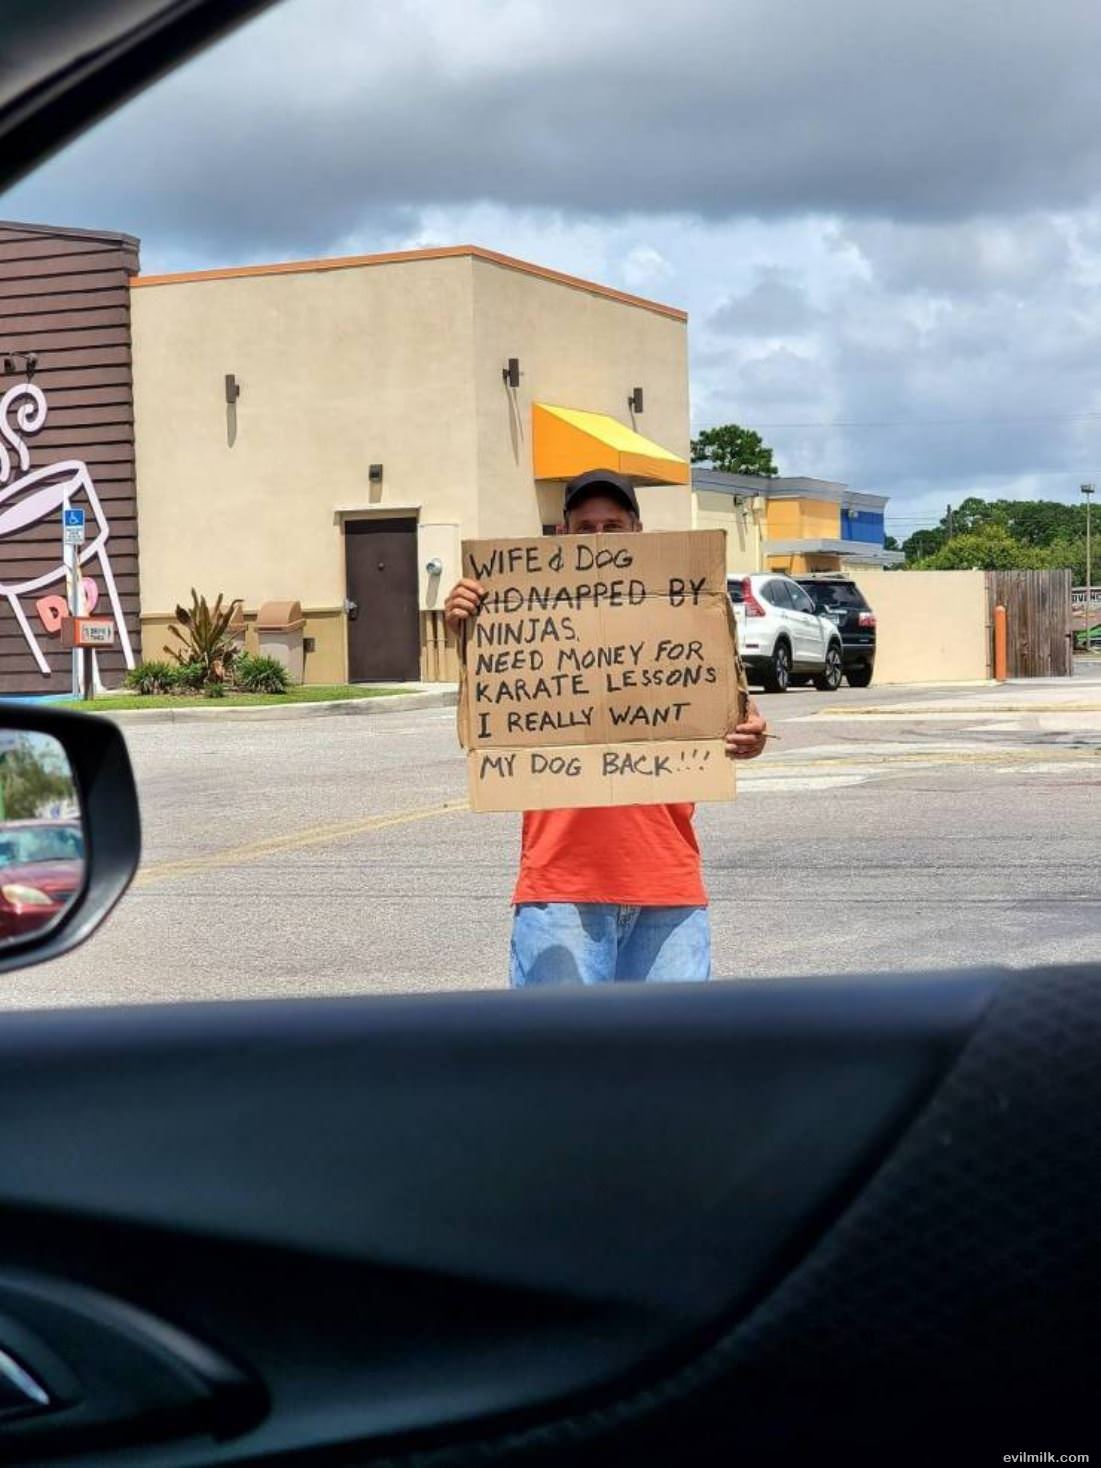 WIFE & DOG
KIDNAPPED BY
NINJAS.
NEED MONEY FOR
KARATE LESSONS
I REALLY WANT
MY DOG BACK!!!
evilmilk.com